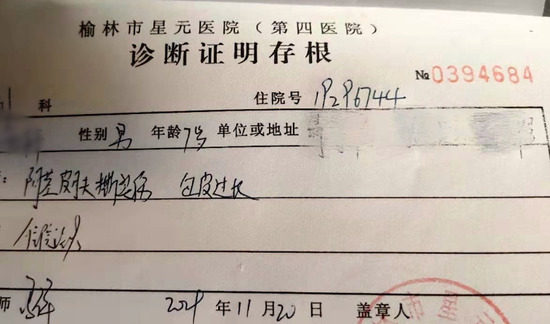 榆林市星元医院（第四医院）
诊断证明存根
№ 0394684
科 住院号 1P2P6744
性别 男 年龄 7岁 单位或地址
阴茎皮肤撕裂伤 包皮过长
住院治疗
师 2021 年 11 月 20 日 盖章人